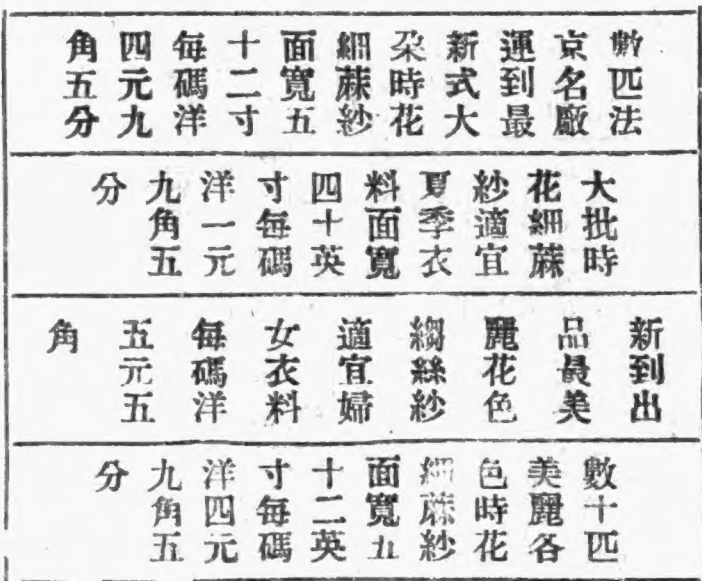 數匹法
京名廠
運到最
新式大
朶時花
細蔴紗
面寬五
十二寸
每碼洋
四元九
角五分
大批時
花細蔴
紗適宜
夏季衣
料面寬
四十英
寸每碼
洋一元
九角五
分
新到出
品最美
麗花色
縐絲紗
適宜婦
女衣料
每碼洋
五元五
角
數十匹
美麗各
色時花
細蔴紗
面寬五
十二英
寸每碼
洋四元
九角五
分